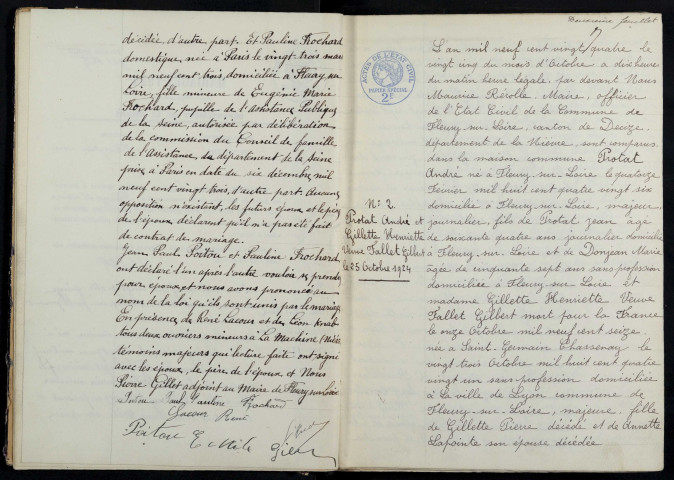 décidée d'autre part. Et Pauline Frochard
domestique, née à Paris le vingt-trois mars
mil neuf cent trois, domiciliée à Fleury sur
Loire, fille mineure de Eugénie Marie
Frochard, pupille de l'Assistance Publique
de la Seine, autorisée par délibération
de la commission du Conseil de famille
de l'Assistance du département de la Seine
prise à Paris en date du six décembre mil
neuf cent vingt trois, d'autre part. Aucune
opposition n'existant, les futurs époux et le père
de l'époux, déclarent qu'il n'a pas été fait
de contrat de mariage.
Jean Paul Poitou et Pauline Frochard
ont déclaré l'un après l'autre vouloir se prendre
pour époux et nous avons prononcé au
nom de la loi qu'ils sont unis par le mariage
En présence de René Lacour et de Léon
tous deux ouvriers mineurs à La Machine (Nièvre)
témoins majeurs qui lecture faite ont signé
avec les époux, le père de l'époux et Nous
Pierre Gillet adjoint au Maire de Fleury sur Loire
Poitou Paul Pauline Frochard
Lacour René
Poitou E
ACTES DE L'ETAT CIVIL
PAPIER SPECIAL
2F
N° 2
Protat André et
Gillette Henriette
Veuve Tallet Gilbert
le 25 Octobre 1924
Deuxième feuillet
L'an mil neuf cent vingt quatre le
vingt cinq du mois d'Octobre à dix heures
du matin heure légale, par devant Nous
Maurice Rérolle, Maire, officier
de l'Etat Civil de la Commune de
Fleury-sur-Loire, canton de Decize,
département de la Nièvre, sont comparus
dans la maison commune Protat
André né à Fleury sur Loire le quatorze
Février mil huit cent quatre vingt six
domicilié à Fleury sur Loire, majeur
journalier, fils de Protat Jean âgé
de soixante quatre ans journalier domicilié
à Fleury sur Loire et de Donjean Marie
âgée de cinquante sept ans sans profession
domiciliée à Fleury sur Loire et
madame Gillette Henriette Veuve
Tallet Gilbert mort pour la France
le onze Octobre mil neuf cent seize
née à Saint-Germain Chassenay le
vingt trois Octobre mil huit cent quatre
vingt un sans profession domiciliée
à La ville de Lyon commune de
Fleury-sur-Loire, majeure, fille
de Gillette Pierre décédé et de Annette
Lapointe son épouse décédée